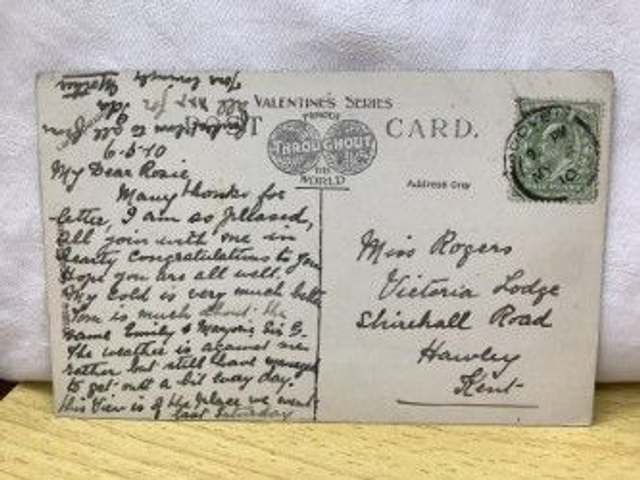 VALENTINE'S SERIES
FAMOUS
THROUGHOUT
THE
WORLD
POST CARD.
Address Only
6-5-10
My Dear Rosie
Many thanks for
letter, I am so pleased,
all join with me in
hearty congratulations to you
Hope you are all well.
My cold is very much better
Tom is much about the
same Emily & Marjorie Sis G.
The weather is against me
rather but still have managed
to get out a bit every day.
This View is of the place we went
last Saturday
to all
all
for
Mother
Miss Rogers
Victoria Lodge
Shirehall Road
Hawley
Kent